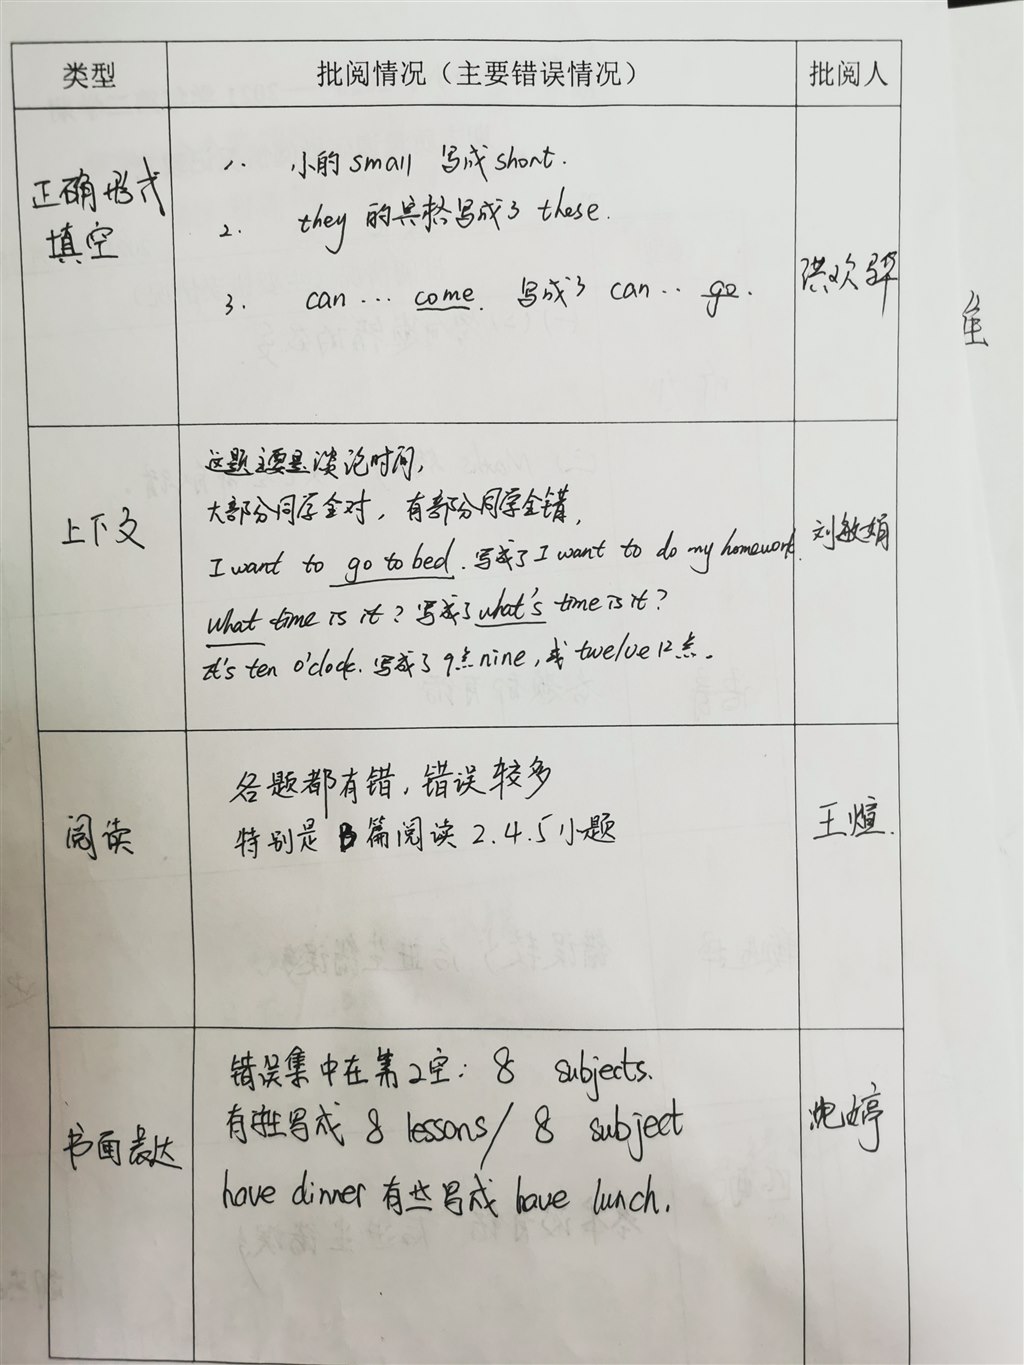 类型 批阅情况（主要错误情况） 批阅人
正确形式
填空
1. 小的 small 写成 short.
2. they 的宾格写成了 these.
3. can ... come. 写成了 can ... go.
洪欢
上下文
这题主要是谈论时间,
大部分同学全对, 有部分同学全错,
I want to go to bed. 写成了 I want to do my homework.
what time is it? 写成了 what's time is it?
It's ten o'clock. 写成了 9点 nine, 或 twelve 12点.
刘敏娟
阅读
各题都有错, 错误较多
特别是 B 篇阅读 2.4.5 小题
王煊.
书面表达
错误集中在第2空: 8 subjects.
有些写成 8 lessons/ 8 subject
have dinner 有些写成 have lunch.
沈婷